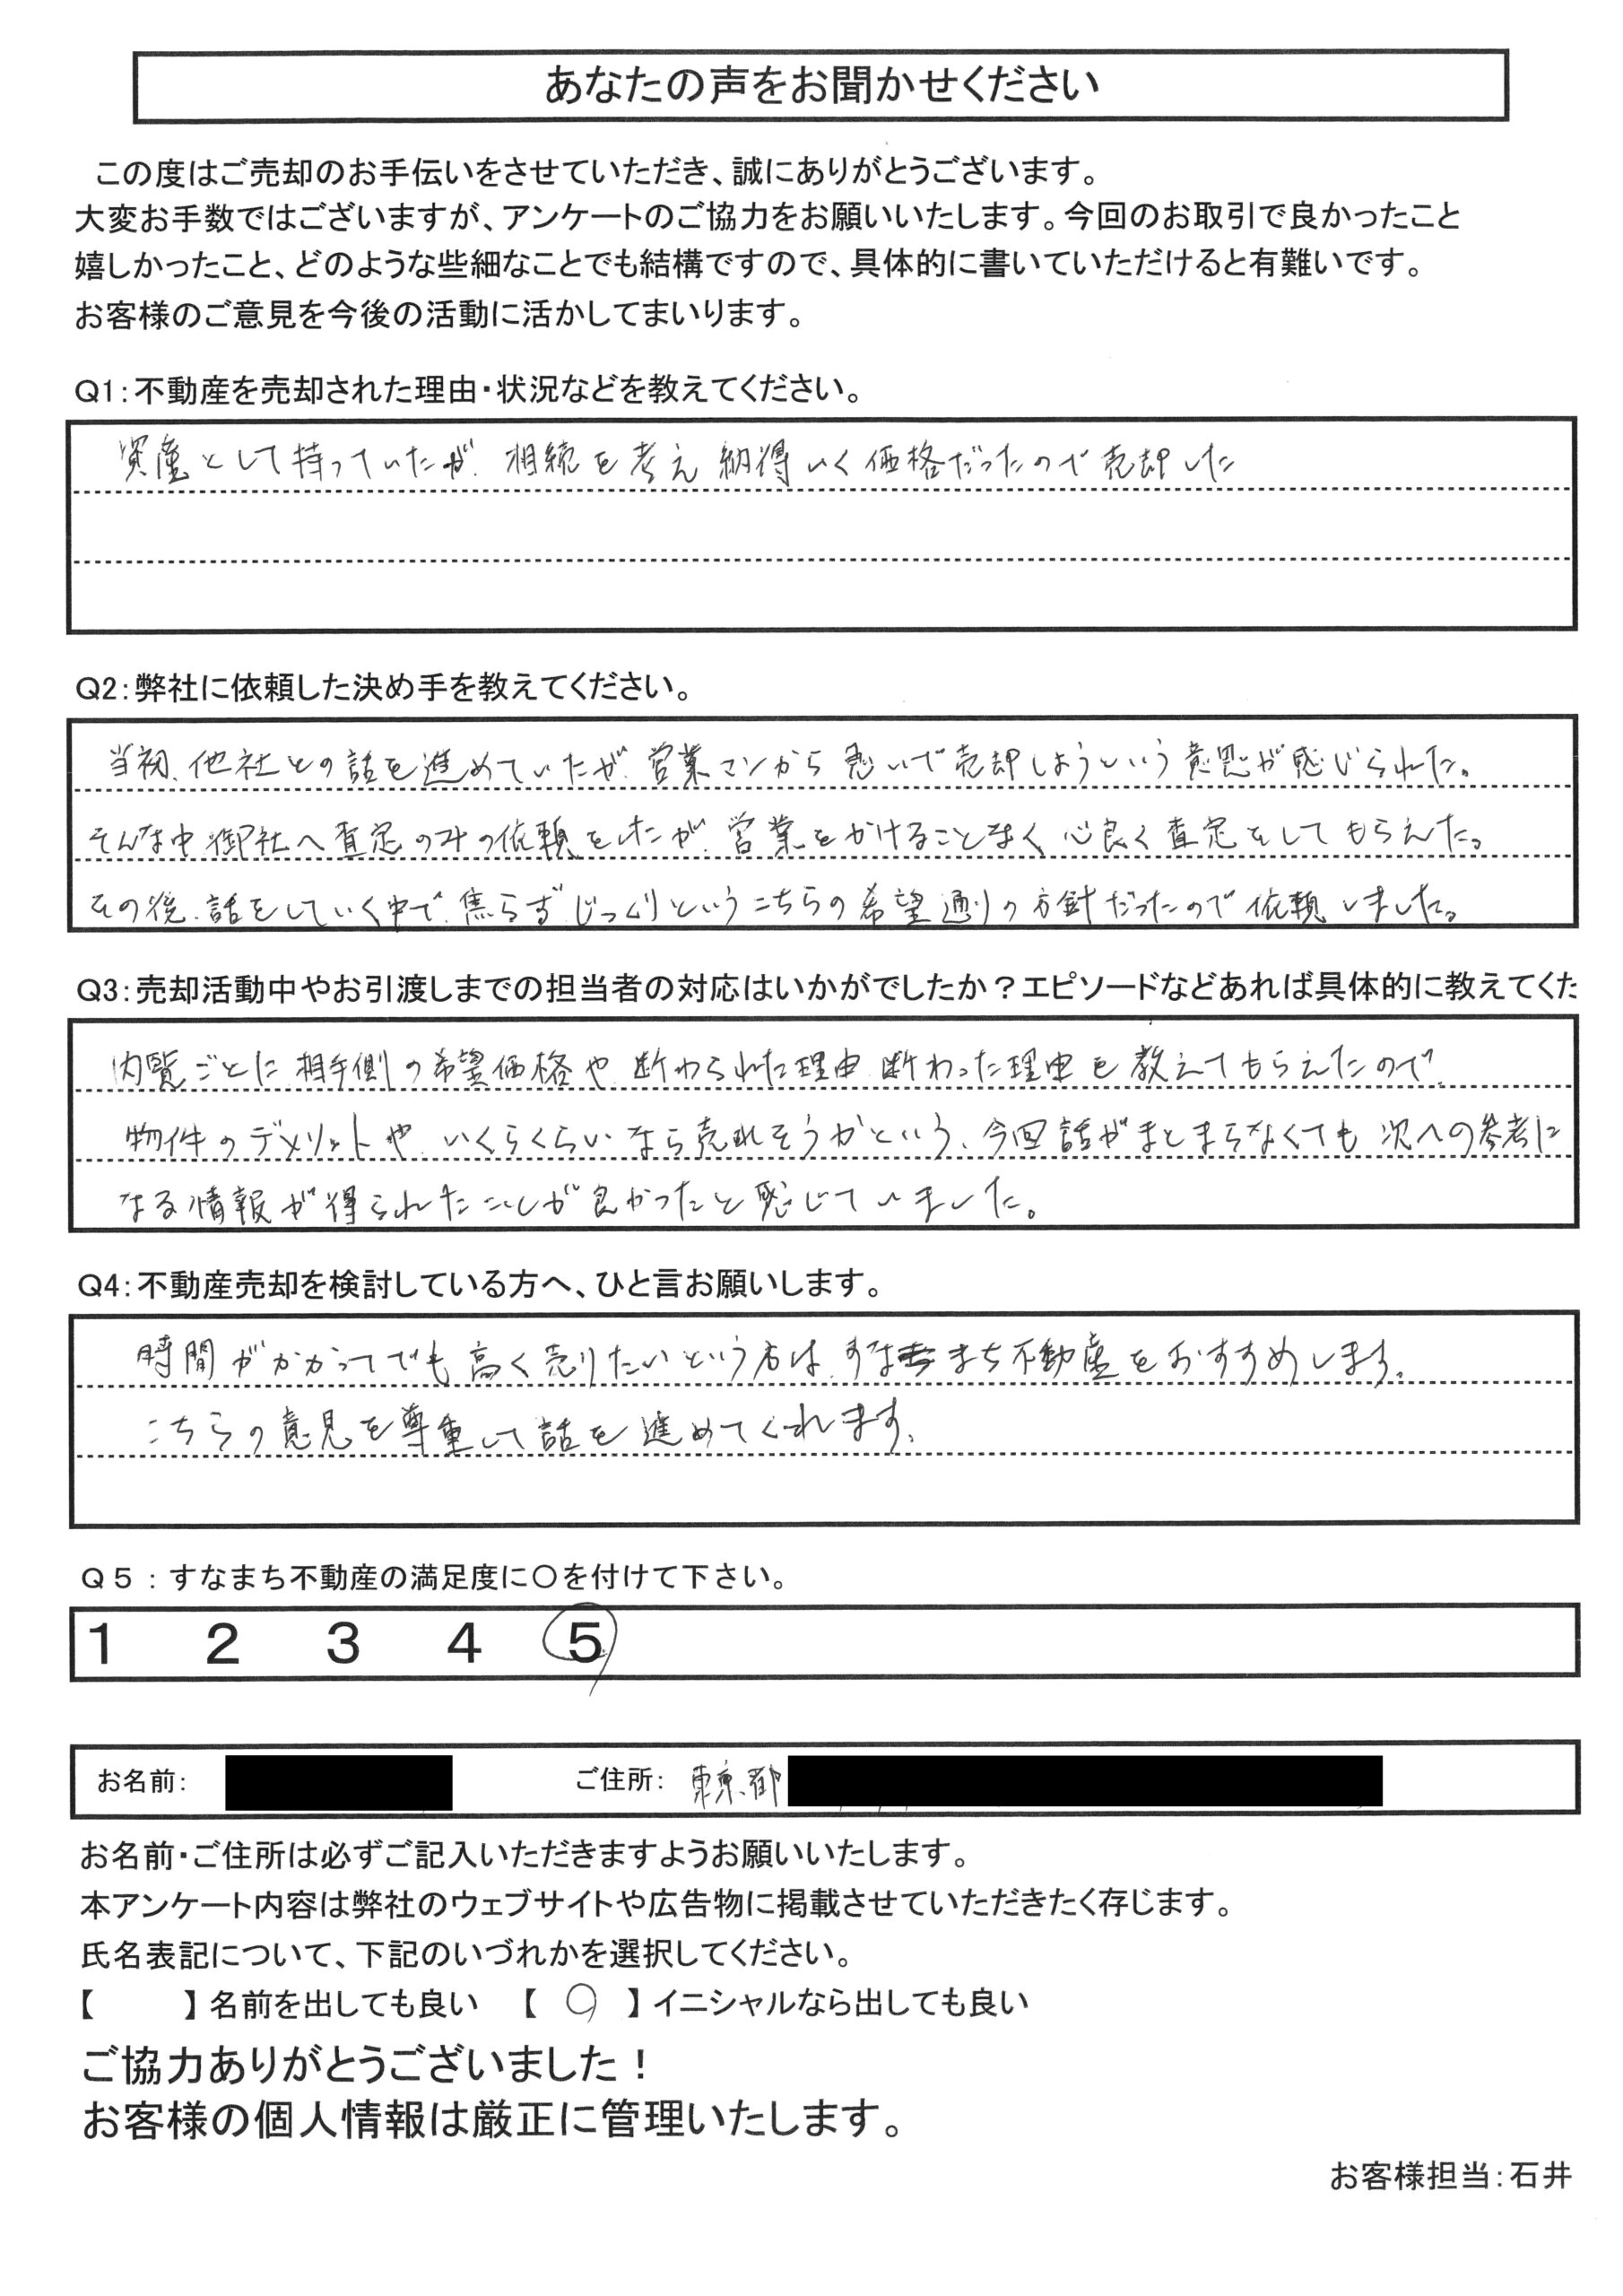 あなたの声をお聞かせください
この度はご売却のお手伝いをさせていただき、誠にありがとうございます。
大変お手数ではございますが、アンケートのご協力をお願いいたします。今回のお取引で良かったこと
嬉しかったこと、どのような些細なことでも結構ですので、具体的に書いていただけると有難いです。
お客様のご意見を今後の活動に活かしてまいります。
Q1:不動産を売却された理由・状況などを教えてください。
資産として持っていたが、相続を考え納得いく価格だったので売却した
Q2:弊社に依頼した決め手を教えてください。
当初、他社との話を進めていたが、営業マンから急いで売却しようという意思が感じられた。
そんな中御社へ査定のみの依頼をしたが、営業をかけることなく、心良く査定をしてもらえた。
その後、話をしていく中で、焦らず、じっくりというこちらの希望通りの方針だったので依頼しました。
Q3:売却活動中やお引渡しまでの担当者の対応はいかがでしたか?エピソードなどあれば具体的に教えてくた
内覧ごとに、相手側の希望価格や、断わられた理由、断わった理由を教えてもらえたので、
物件のデメリットや、いくらくらいなら売れそうかという、今回話がまとまらなくても次への参考に
なる情報が得られたことが良かったと感じていました。
Q4:不動産売却を検討している方へ、ひと言お願いします。
時間がかかってでも高く売りたいという方は、すなまち不動産をおすすめします。
こちらの意見を尊重して話を進めてくれます。
Q5:すなまち不動産の満足度に〇を付けて下さい。
1 2 3 4 5
お名前: ご住所: 東京都
お名前・ご住所は必ずご記入いただきますようお願いいたします。
本アンケート内容は弊社のウェブサイトや広告物に掲載させていただきたく存じます。
氏名表記について、下記のいづれかを選択してください。
【 】名前を出しても良い 【 〇 】イニシャルなら出しても良い
ご協力ありがとうございました!
お客様の個人情報は厳正に管理いたします。
お客様担当:石井